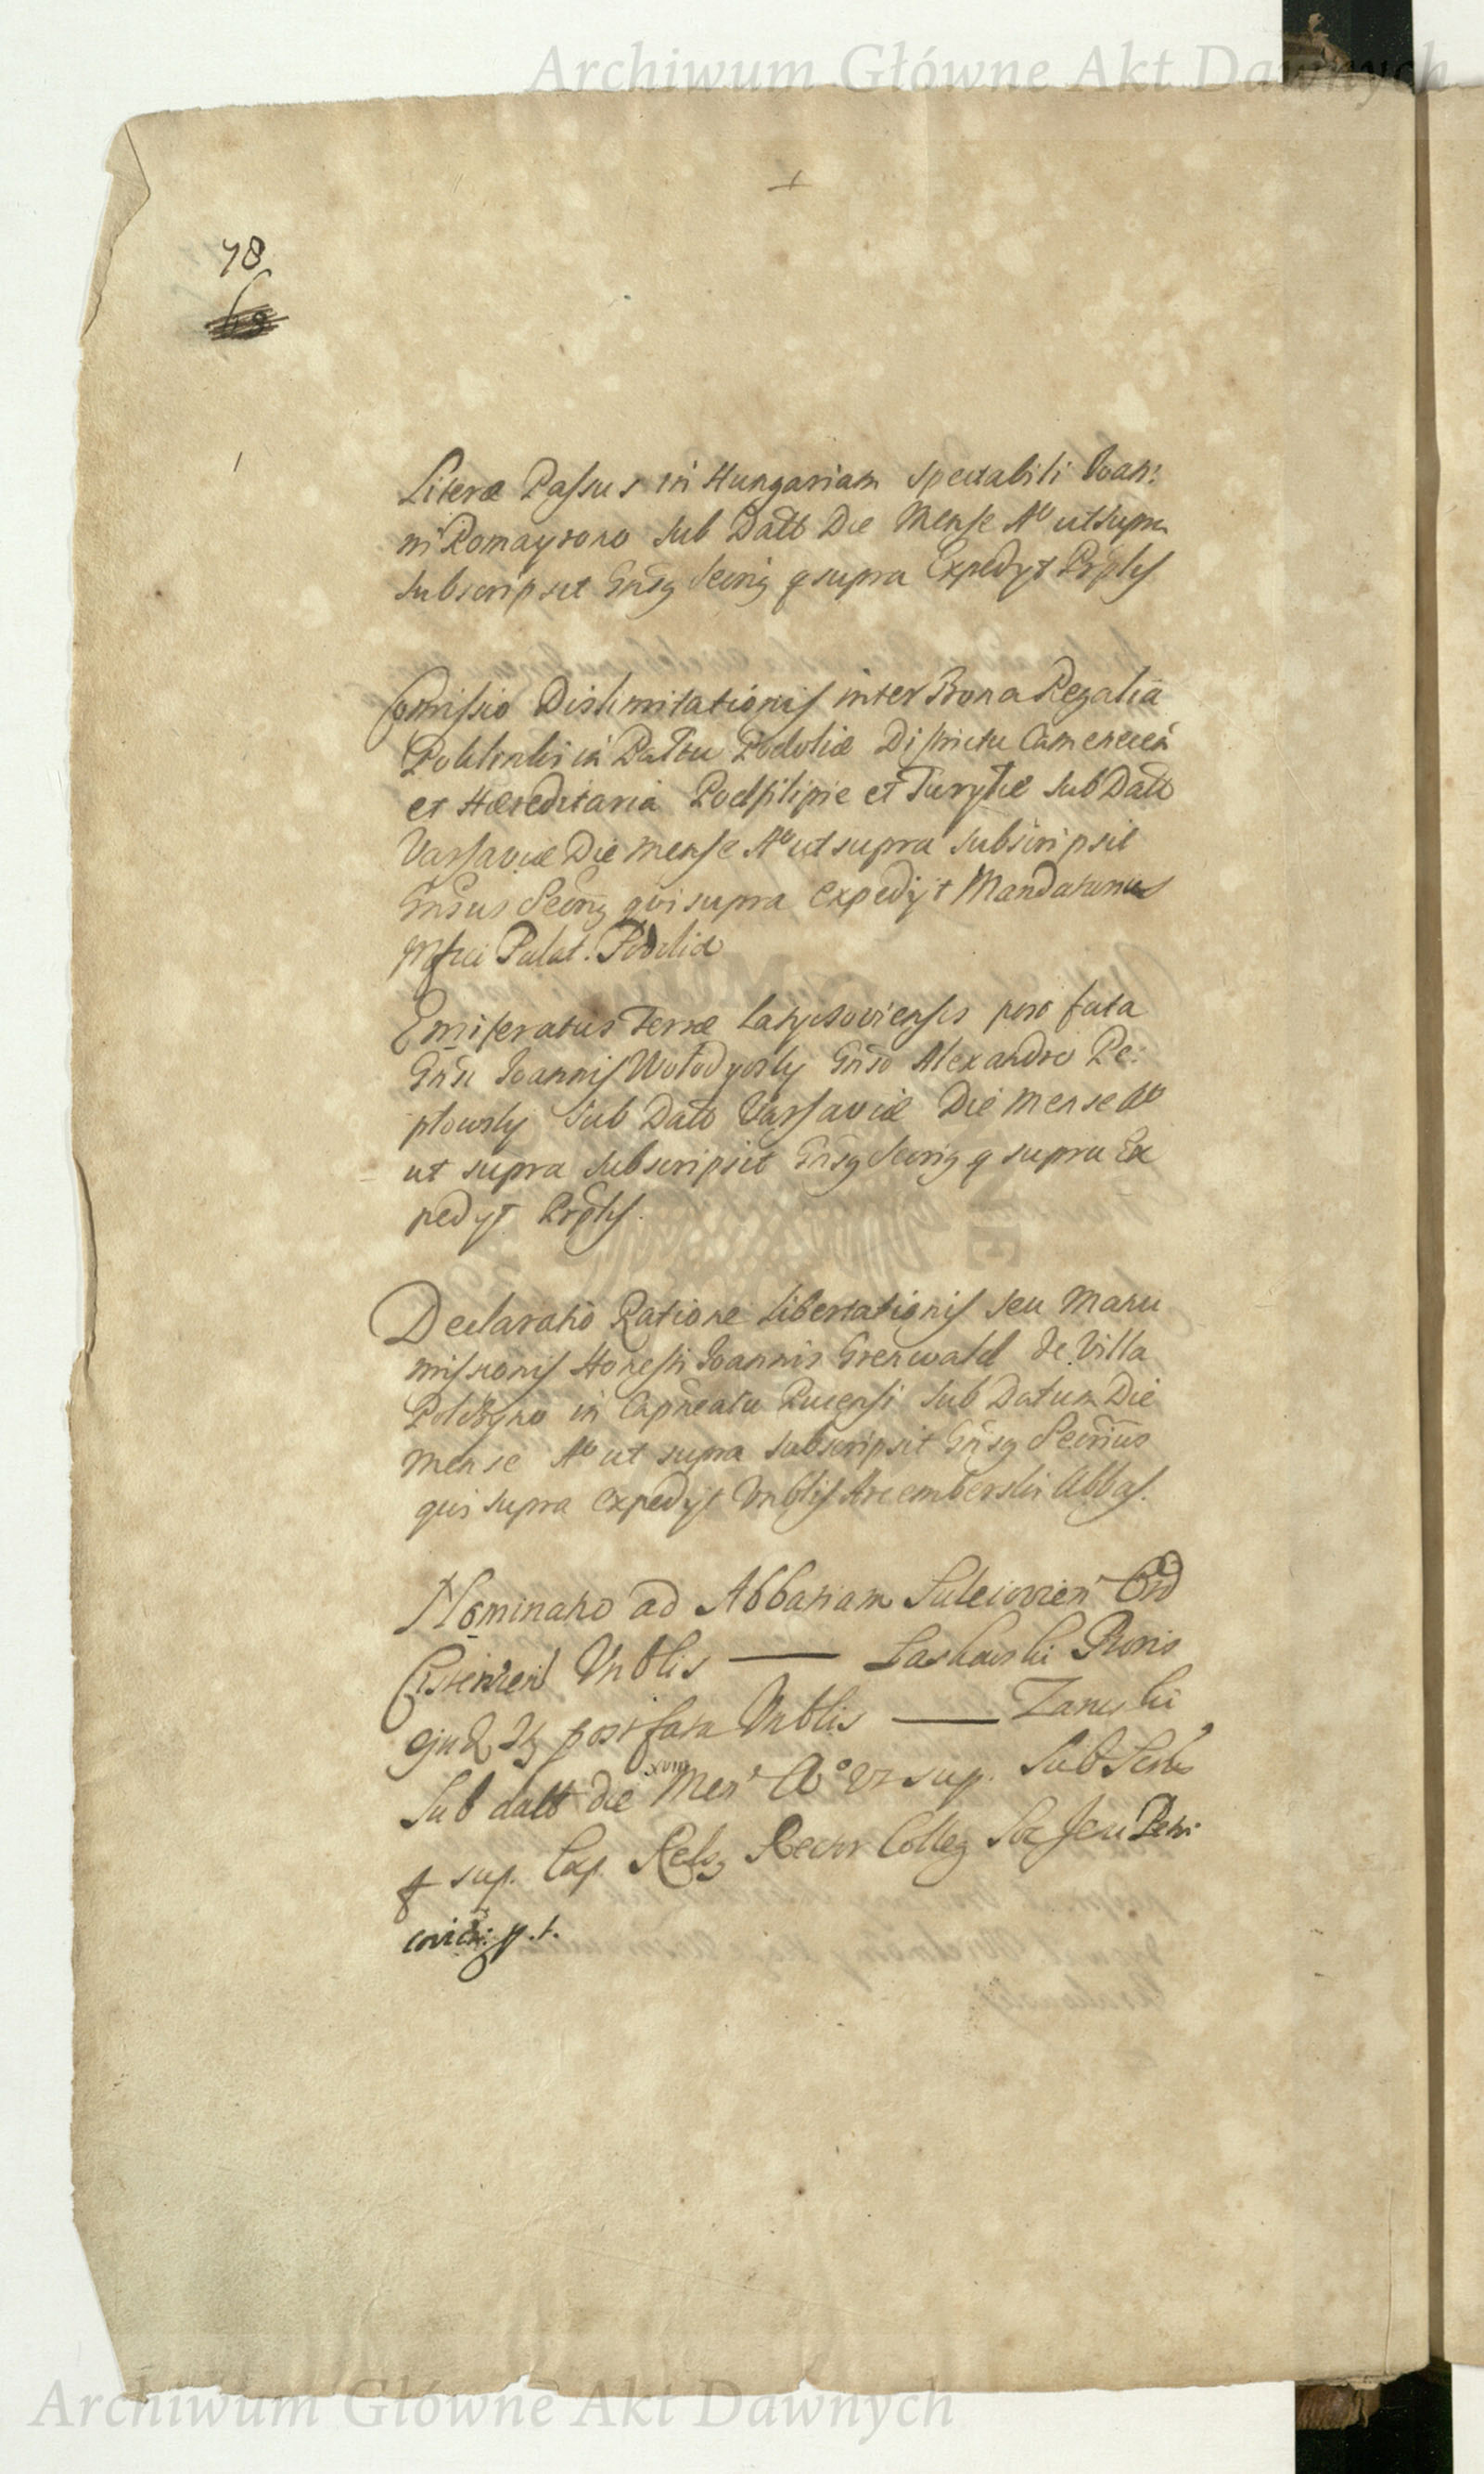 Archiwum Główne Akt Dawnych
78
Literæ Passus in Hungariam Spectabili Joan:
ni Romayrono sub Datt Die Mense Aº ut supra
subscripsit Gnsg Secrig q supra Expedyt Rptus
Comissio Dislimitationis inter Bona Regalia
in Paltu Podoliæ Districtu Camenecen
et Hæreditaria Podfilipie et Turylcæ sub Datt
Varsaviæ Die Mense Aº ut supra subscripsit
Gnsus Secrig qui supra expedijt Mandatarius
Mfici Palat. Podoliæ
Emiseratus Terræ Latyczoviensis post fata
Gnsi Joannis Wołodyosky Gnso Alexandro Pe:
plowsky sub Datt Varsaviæ Die Mense Aº
ut supra subscripsit Gnsg Secrig q supra Ex
pedyt Rptus.
Declaratio Ratione Libertationis seu Manu
missionis Honesti Joannis Grenwald de Villa
Polczyno in Capneatu Pucensi sub Datum Die
Mense Aº ut supra subscripsit Gnsg Secrius
qui supra expedyt Vnblis Arcemberski Abbas.
Nominatio ad Abbatiam Suleiovien Ord
Cistercien Vnblis — Laskowski Roris
ejud post fata Vnblis — Zaneski
Sub datt die xvma Men Aº ut sup. Sub Scrbs
q sup. Exp. Relg Rector Colleg Soc Jesu Petri
coviensi p.t.
Archiwum Główne Akt Dawnych